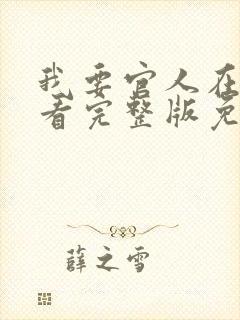 我要官人在
看完整版免
薛之雪